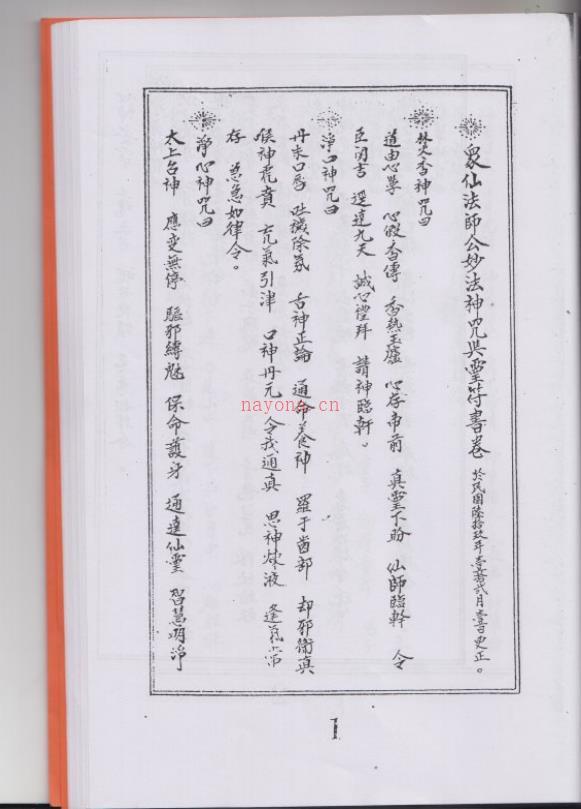 眾仙法師公妙法神咒與靈符書卷 於民國陸拾玖年壹拾貳月壹日更正。
焚香神咒曰
道由心學 心假香傳 香熱玉爐 心存帝前 真靈下盼 仙師臨幹 令
臣關告 逕達九天 誠心禮拜 請神臨軒。
淨口神咒曰
丹朱口唇 吐穢除氛 舌神正論 通命養神 羅于齒部 却邪衛真
喉神虎賁 炁氣引津 口神丹元 令我通真 思神煉液 逢氣常
存 急急如律令。
淨心神咒曰
太上台神 應变無停 驅邪縛魅 保命護牙 通達仙靈 智慧明淨
1
nayona.cn